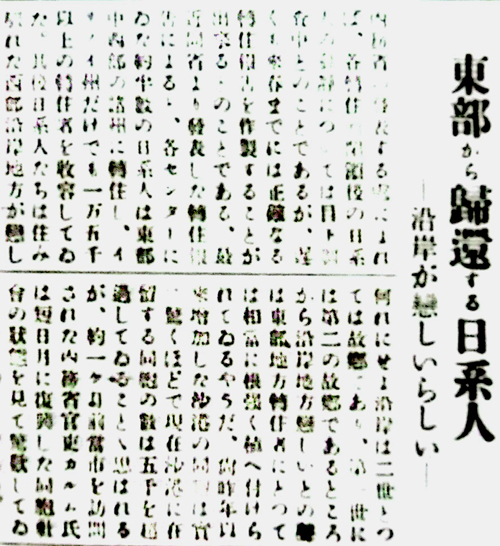 東部から歸還する日系人
―沿岸が戀しいらしい―
內務省の發表する處によれ
ば、各轉住
ては目下調
査中とのことであるが、遲
くも來春までには正確なる
轉住報吿を作製することが
出來る、のことである、最
近同省より發表した轉住報
吿によると、各センターに
ゐた約半數の日系人は東部
中西部の諸州に轉住し、イ
リノイ州だけでも一万五千
以上の轉住者を收容してゐ
た、其後日系人たちは住み
馴れた西部沿岸地方が戀し
何れにせよ沿岸は二世とつ
ては故鄕であり、第一世に
は第二の故鄕であるところ
から沿岸地方戀しいとの聲
は東部地方轉住者にとつて
は相當に根强く植へ付けら
れてゐるやうだ、尙昨年以
來增加した沙港の同胞は實
に驚くほどで現在沙港に在
留する同胞の數は五千を超
過してゐること、思はれる
が、約一ヶ月前當市を訪問
された內務省官東カルム氏
は短日月に復興した同胞軒
台の狀態を見て驚歎してゐ